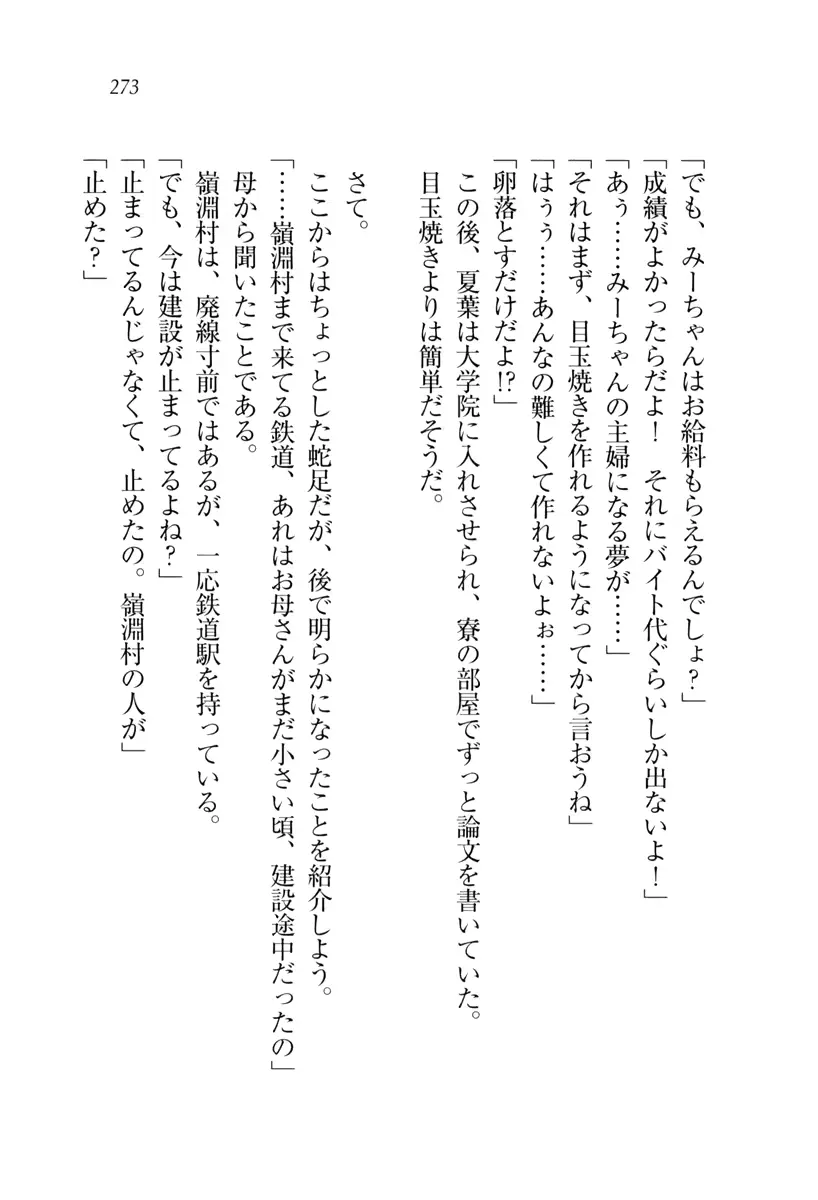 273
「でも、みーちゃんはお給料もらえるんでしょ？」
「成績がよかったらだよ！　それにバイト代ぐらいしか出ないよ！」
「あぅ……みーちゃんの主婦になる夢が……」
「それはまず、目玉焼きを作れるようになってから言おうね」
「はぅぅ……あんなの難しくて作れないよぉ……」
「卵落とすだけだよ!?」
この後、夏葉は大学院に入れさせられ、寮の部屋でずっと論文を書いていた。
目玉焼きよりは簡単だそうだ。
さて。
ここからはちょっとした蛇足だが、後で明らかになったことを紹介しよう。
「……嶺淵村まで来てる鉄道、あれはお母さんがまだ小さい頃、建設途中だったの」
母から聞いたことである。
嶺淵村は、廃線寸前ではあるが、一応鉄道駅を持っている。
「でも、今は建設が止まってるよね？」
「止まってるんじゃなくて、止めたの。嶺淵村の人が」
「止めた？」